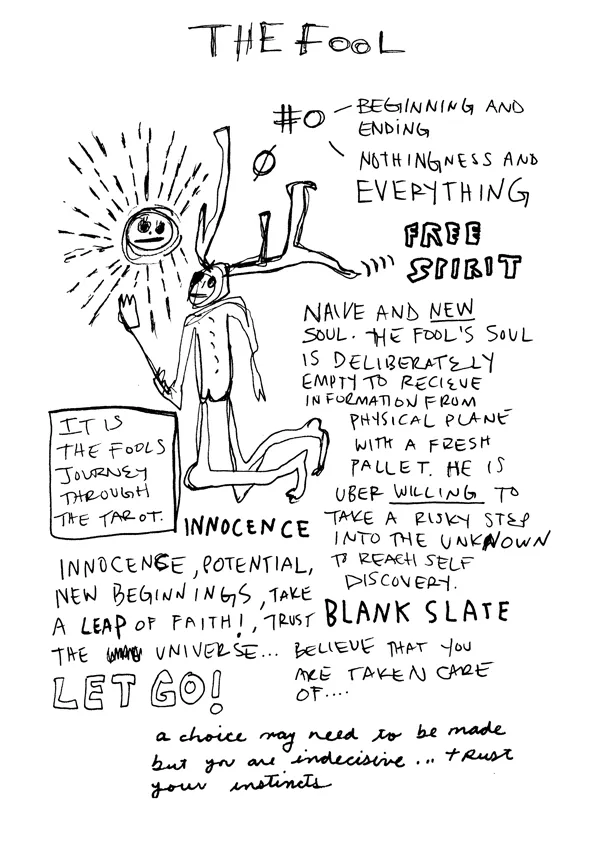 THE FOOL
#0
BEGINNING AND
ENDING
Ø
NOTHINGNESS AND
EVERYTHING
FREE
SPIRIT
NAIVE AND NEW
SOUL. THE FOOL'S SOUL
IS DELIBERATELY
EMPTY TO RECIEVE
INFORMATION FROM
PHYSICAL PLANE
WITH A FRESH
PALLET. HE IS
UBER WILLING TO
TAKE A RISKY STEP
INTO THE UNKNOWN
TO REACH SELF
DISCOVERY.
IT IS
THE FOOLS
JOURNEY
THROUGH
THE TAROT.
INNOCENCE
INNOCENCE, POTENTIAL,
NEW BEGINNINGS, TAKE
A LEAP OF FAITH!, TRUST
THE UNIVERSE...
LET GO!
BLANK SLATE
BELIEVE THAT YOU
ARE TAKEN CARE
OF....
a choice may need to be made
but you are indecisive... trust
your instincts